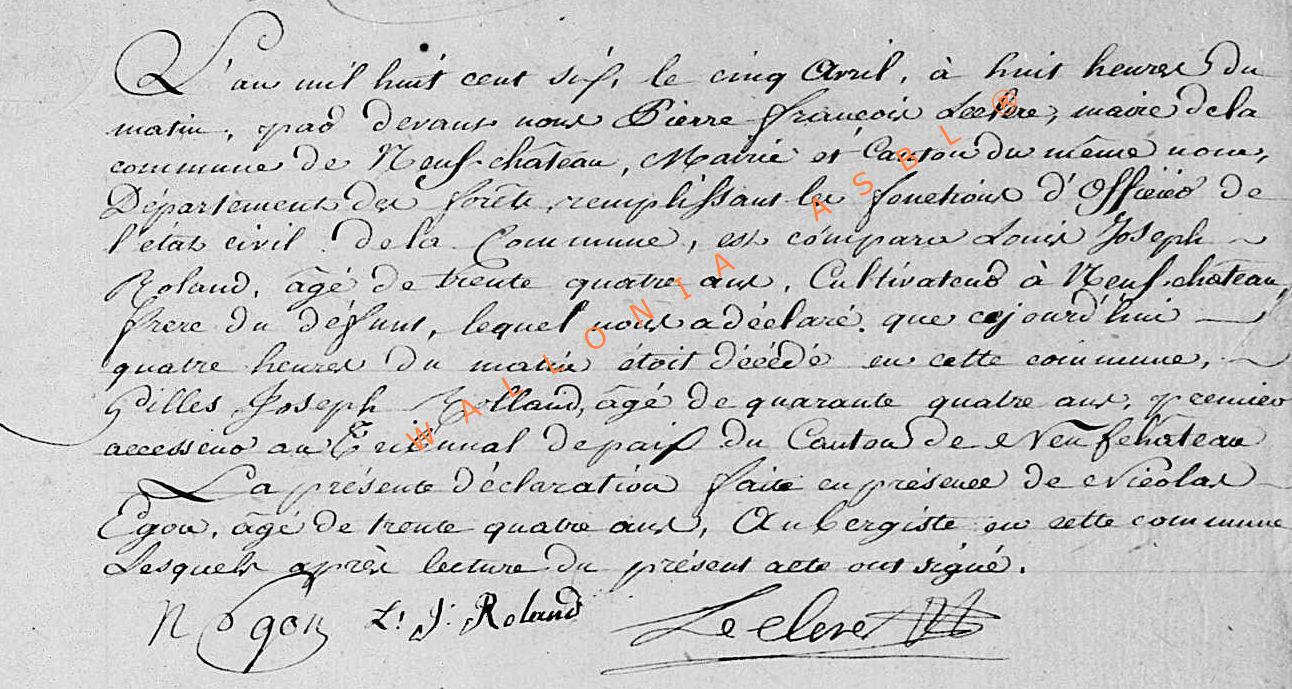 L'an mil huit cent six, le cinq Avril, à huit heures du
matin, par devant nous Pierre françois Leclere, maire de la
commune de Neufchâteau, Mairie et Canton du même nom,
Département des forêts, remplissant les fonctions d'Officier de
l'état civil de la Commune, est comparu Louis Joseph
Roland, âgé de trente quatre ans, Cultivateur à Neufchâteau,
frere du défunt, lequel nous a déclaré que cejourd'hui
quatre heures du matin étoit décédé en cette commune,
Gilles Joseph Rolland, âgé de quarante quatre ans, premier
accesseur au Tribunal de paix du Canton de Neufchâteau
La présente déclaration faite en présence de Nicolas
Egon, âgé de trente quatre ans, Aubergiste en cette commune
Lesquels après lecture du présent acte ont signé.
N Egon L. J. Roland Leclere
WALLONIA ASBL ©